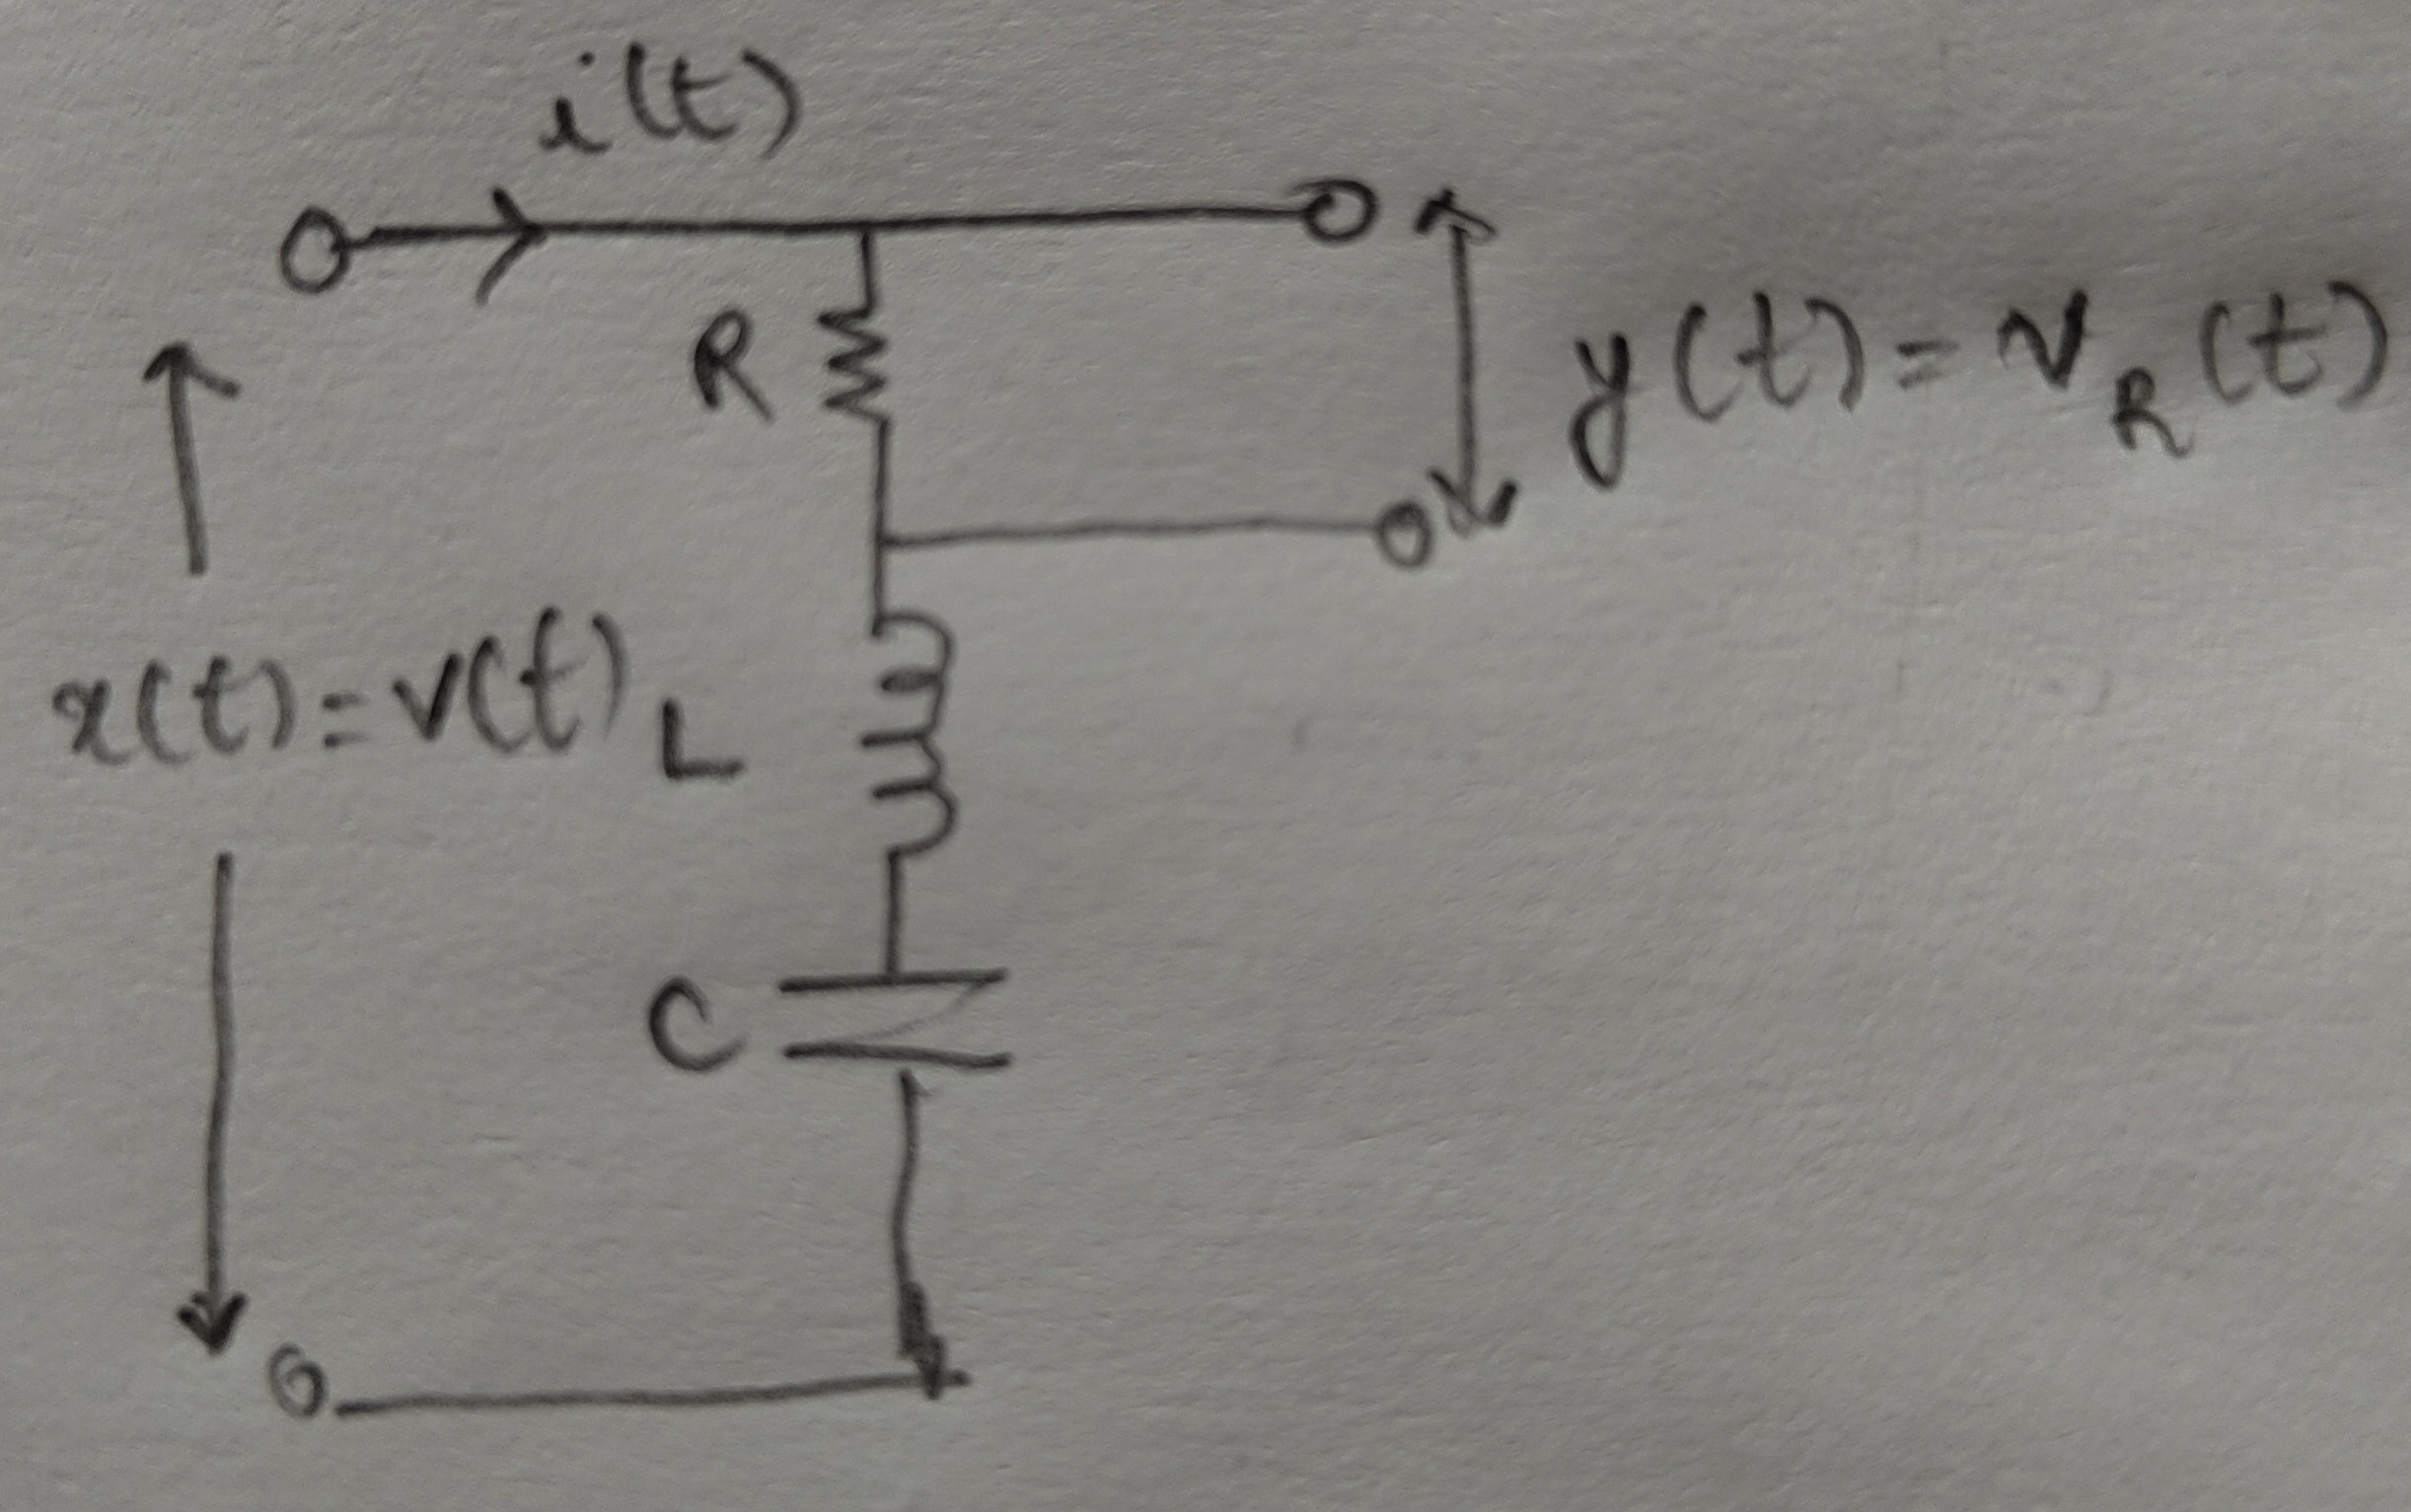 i(t)
R
y(t) = v_R(t)
x(t) = v(t)
L
C